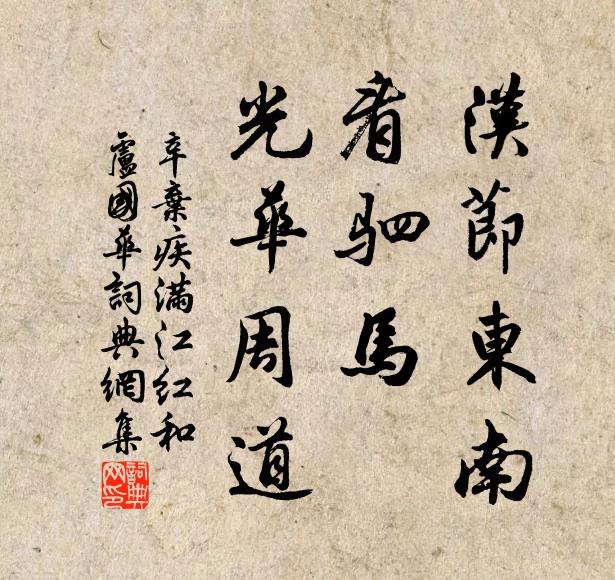 漢節東南
看驷馬
光華周道
辛棄疾滿江紅和
盧國華詞典網集
詞典
网印